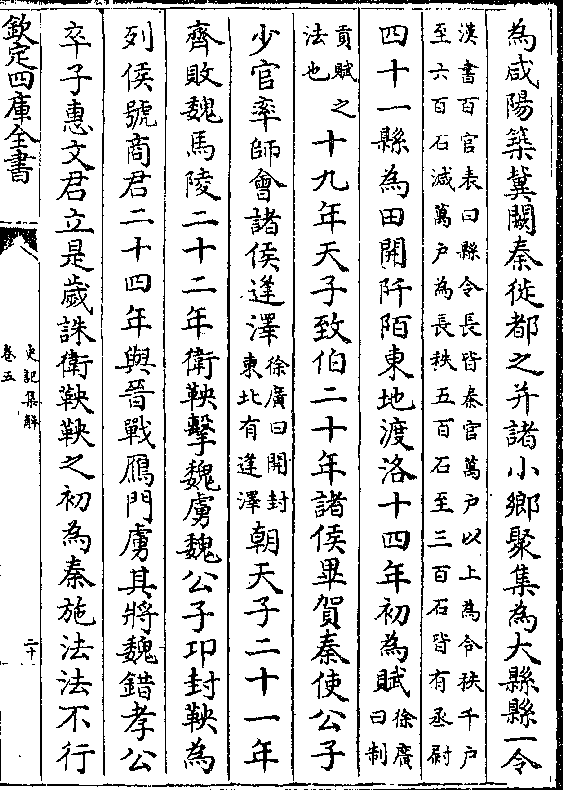 為咸陽築冀闕秦徙都之并諸小鄉聚集為大縣縣一令
漢書百官表曰縣令長皆秦官萬户以上為令秩千户
至六百石減萬户為長秩五百石至三百石皆有丞尉
四十一縣為田開阡陌東地渡洛十四年初為賦徐廣曰制
貢賦之法也十九年天子致伯二十年諸侯畢賀秦使公子
少官率師會諸侯逢澤徐廣曰開封東北有逢澤朝天子二十一年
齊敗魏馬陵二十二年衛鞅擊魏虜魏公子卬封鞅為
列侯號商君二十四年與晉戰鴈門虜其將魏錯孝公
卒子惠文君立是歲誅衛鞅鞅之初為秦施法法不行
欽定四庫全書
史記集解
卷五
二十